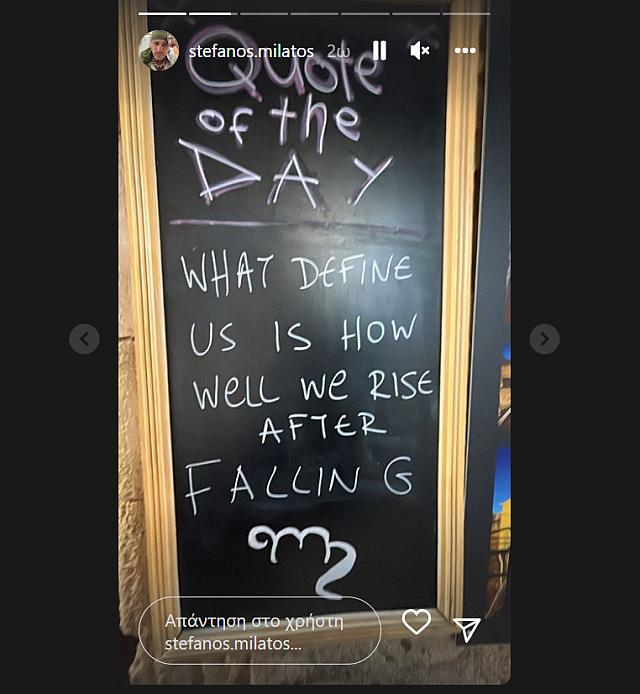 stefanos.milatos 2ω
Quote
of the
DAY
WHAT DEFINE
US IS HOW
WELL WE RISE
AFTER
FALLING
Απάντηση στο χρήστη
stefanos.milatos...